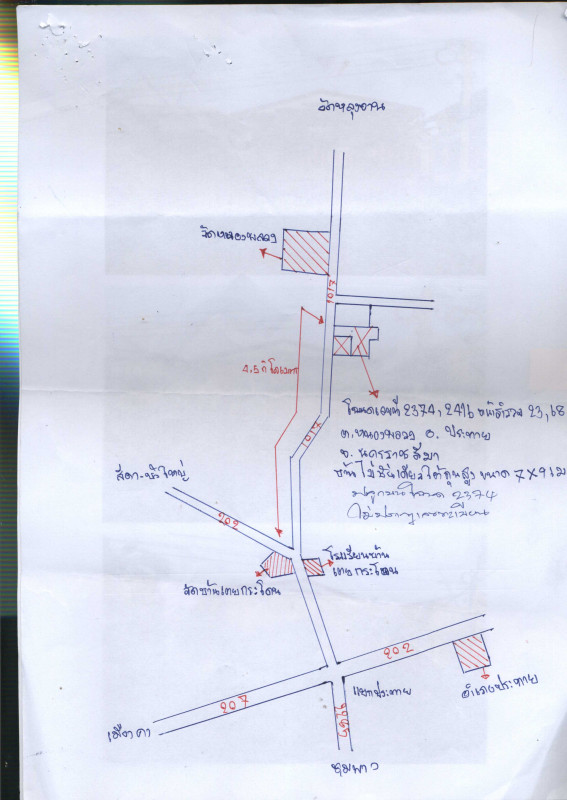 วัดหลุงจาน
วัดหนองพลวง
1017
4,5 กิโลเมตร
โฉนดเลขที่ 2374, 2416 หน้าสำรวจ 23, 68
ต.หนองพลวง อ. ประทาย
จ. นครราชสีมา
บ้านไม้ชั้นเดียวใต้ถุนสูง ขนาด 7 x 9 เมตร
ปลูกบนโฉนด 2374
ไม่ปรากฏเลขทะเบียน
1017
สีดา-บัวใหญ่
202
โรงเรียนบ้าน
เตยกระโตน
วัดบ้านเตยกระโตน
202
แยกประทาย
อำเภอประทาย
207
เมืองคง
ชุมพวง